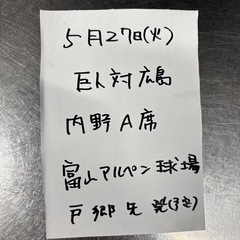 5月27日(火)
巨人対広島
内野A席
富山アルペン球場
戸郷先発(予定)